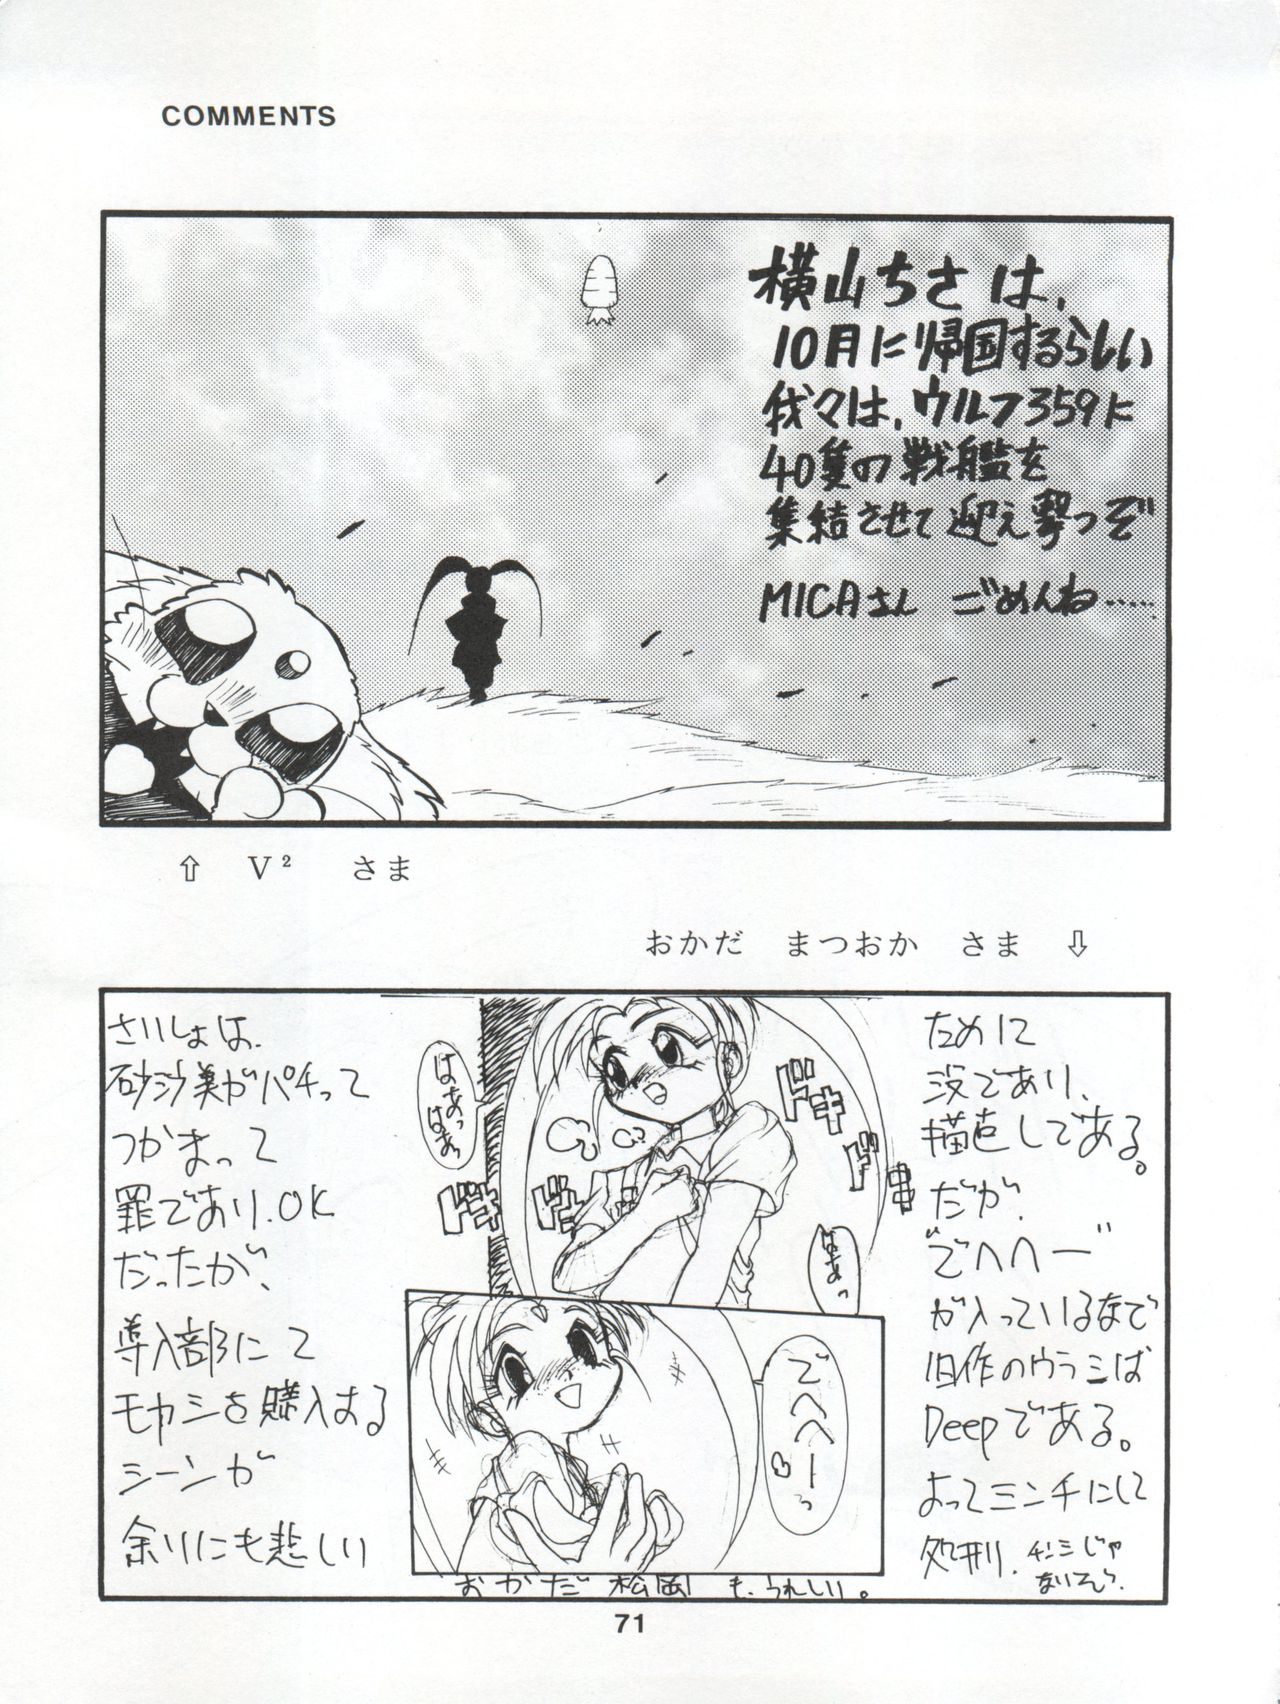 COMMENTS
横山ちさは、
10月に帰国するらしい
我々は、ウルフ359に
40隻の戦艦を
集結させて迎え撃つぞ
MICAさん ごめんね……
⇧ V² さま
おかだ まつおか さま ⇩
さいしょは、
砂沙美がパチって
つかまって
罪であり、OK
だったが、
導入部にて
モヤシを購入する
シーンが
余りにも悲しい
はあっ
はあっ
ドキ
ドキ
ドキ
ドキ
はあっ
でへへーっ♡
おかだ松岡も、うれしい。
ために
没であり、
描直しである。
だが、
"でへへー"
が入っているなで
旧作のウラミば
Deepである。
よってミンチにして
処刑、
71